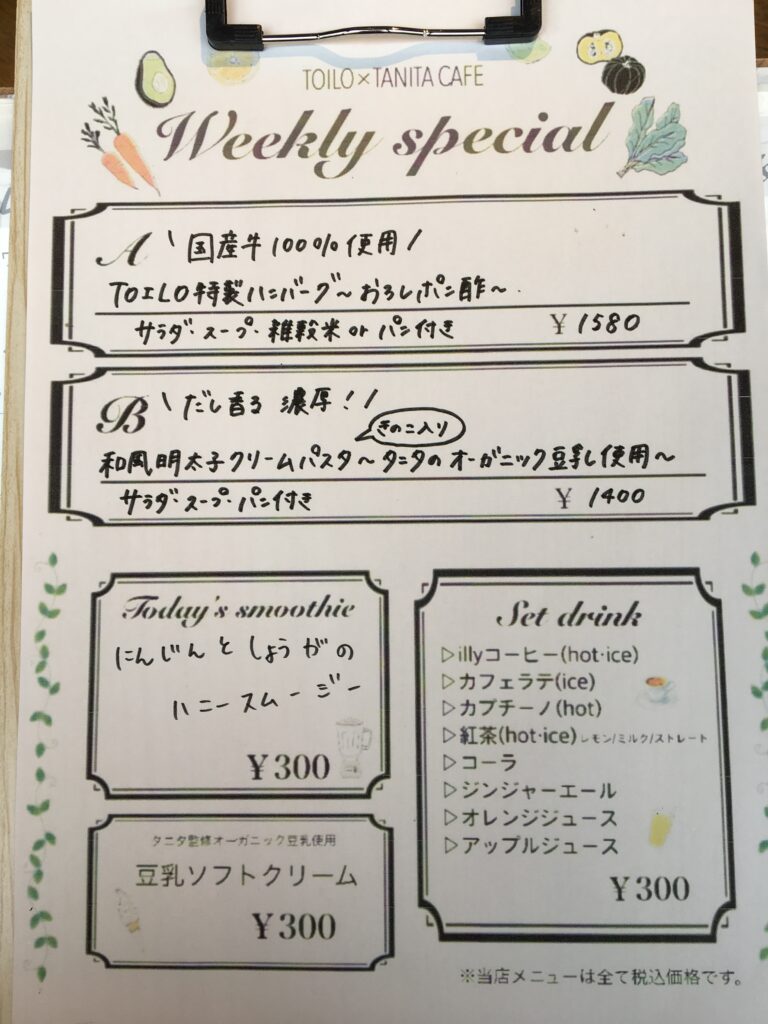 TOILO×TANITA CAFE
Weekly special
A \ 国産牛100%使用 /
TOILO特製ハンバーグ~おろしポン酢~
サラダ・スープ・雑穀米 or パン付き ¥1580
B \ だし香る 濃厚! /
きのこ入り
和風明太子クリームパスタ~タニタのオーガニック豆乳使用~
サラダ・スープ・パン付き ¥1400
Today's smoothie
にんじんとしょうがの
ハニースムージー
¥300
タニタ監修オーガニック豆乳使用
豆乳ソフトクリーム
¥300
Set drink
▷illyコーヒー(hot・ice)
▷カフェラテ(ice)
▷カプチーノ(hot)
▷紅茶(hot・ice) レモン/ミルク/ストレート
▷コーラ
▷ジンジャーエール
▷オレンジジュース
▷アップルジュース
¥300
※当店メニューは全て税込価格です。